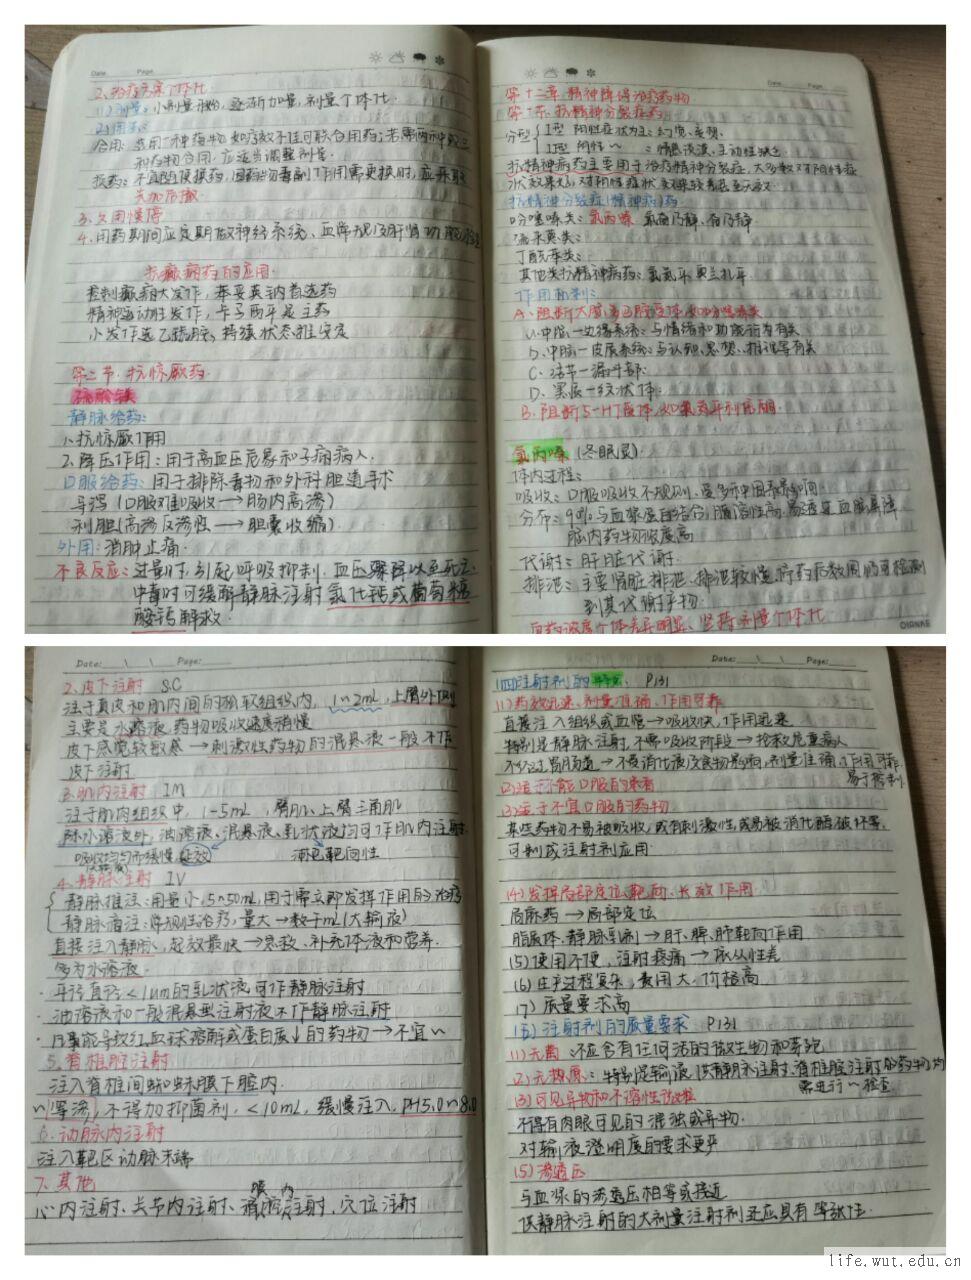 Date. Page.
2. 治疗方案个体化
(1)剂量:小剂量开始,逐渐加量,剂量个体化.
(2)用法:
3. 久用慢停
4. 用药期间应定期做神经系统、血常规及肝肾功能检查
抗癫痫药的应用
控制癫痫大发作,苯妥英钠首选药
精神运动性发作,卡马西平是主药
小发作选乙琥胺,持续状态推安定
第二节.抗惊厥药.
硫酸镁
静脉给药:
1.抗惊厥作用
2.降压作用:用于高血压危象和子痫病人.
口服给药:用于排除毒物和外科胆道手术
导泻(口服难吸收→肠内高渗)
利胆(高渗反渗性→胆囊收缩).
外用:消肿止痛.
不良反应:过量时,引起呼吸抑制.血压骤降以至死亡.
中毒时可缓解静脉注射氯化钙或葡萄糖
酸钙解救.
Date. Page.
第十二章.精神障碍治疗药物
第一节.抗精神分裂症药
分型 I型 阳性症状为主:幻觉、妄想.
II型 阴性~ :情感淡漠、主动性缺乏
抗精神病药主要用于治疗精神分裂症,大多数对阳性症
状效果好,对阴性症状效果较差甚至无效
抗精神分裂症(精神病)药
吩噻嗪类:氯丙嗪 氟奋乃静、奋乃静.
硫杂蒽类:
丁酰苯类:
其他类抗精神病药:氯氮平 奥兰扎平
作用机制:
A.阻断大脑多巴胺受体,如吩噻嗪类
a.中脑—边缘系统:与情绪和功能行为有关
b.中脑—皮层系统:与认知、思想、推理等有关
C.结节—漏斗部:
D.黑质—纹状体:
B.阻断5-HT受体,如氯氮平利培酮.
氯丙嗪(冬眠灵)
体内过程:
吸收:口服吸收不规则,受多种因素影响
分布:90%与血浆蛋白结合,脂溶性高.易透过血脑屏障
脑内药物浓度高
代谢:肝脏代谢.
排泄:主要肾脏排泄.排泄较慢,停药后数周仍可检测
到其代谢产物.
血药浓度个体差异明显、坚持剂量个体化
DIANKE
Date: \ \ Page:
2.皮下注射 S.C
注于真皮和肌肉间的松软组织内, 1~2mL,上臂外侧
主要是水溶液,药物吸收速度稍慢
皮下感觉较敏感→刺激性药物的混悬液一般不作
皮下注射
3.肌内注射 IM
注于肌肉组织中, 1-5mL,臀肌、上臂三角肌
除水溶液外,油溶液、混悬液、乳状液均可作肌内注射.
吸收均匀而缓慢,延效 淋巴靶向性
4.静脉注射 IV
静脉推注:用量小,5~50mL,用于需立即发挥作用的治疗
静脉滴注:常规性治疗,量大→数千mL(大输液)
直接注入静脉,起效最快→急救、补充体液和营养.
多为水溶液.
·平均直径<1um的乳状液,可作静脉注射
·油溶液和一般混悬型注射液不作静脉注射
·凡是能导致红血球溶解或蛋白质↓的药物→不宜~
5.脊椎腔注射
注入脊椎间蛛网膜下腔内.
~等渗,不得加抑菌剂,<10mL,缓慢注入,PH5.0~8.0
6.动脉内注射
注入靶区动脉末端
7.其他
心内注射、关节内注射、穴位注射
Date: \ \ Page:
(四)注射剂的特点. P131
(1)药效迅速、剂量准确、作用可靠
直接注入组织或血管→吸收快,作用迅速
特别是静脉注射,不需吸收阶段→抢救危重病人
不经过胃肠道→不受消化液及食物影响,剂量准确,作用可靠
易于控制
(2)适于不能口服的患者
(3)适于不宜口服的药物
某些药物不易被吸收,或有刺激性,或易被消化酶破坏等.
可制成注射剂应用.
(4)发挥局部定位、靶向、长效作用.
局麻药→局部定位
脂质体.静脉乳剂→肝、脾、肺靶向作用
(5)使用不便,注射疼痛→依从性差
(6)生产过程复杂,费用大,价格高
(7)质量要求高
(五)注射剂的质量要求 P131
(1)无菌:不应含有任何活的微生物和芽孢
(2)无热原:特别是输液,供静脉注射、脊椎腔注射的药物,均
需进行~检查
(3)可见异物和不溶性微粒
不得有肉眼可见的混浊或异物.
对输液澄明度的要求更严
(5)渗透压
与血浆的渗透压相等或接近
供静脉注射的大剂量注射剂还应具有等张性.
life.wut.edu.cn